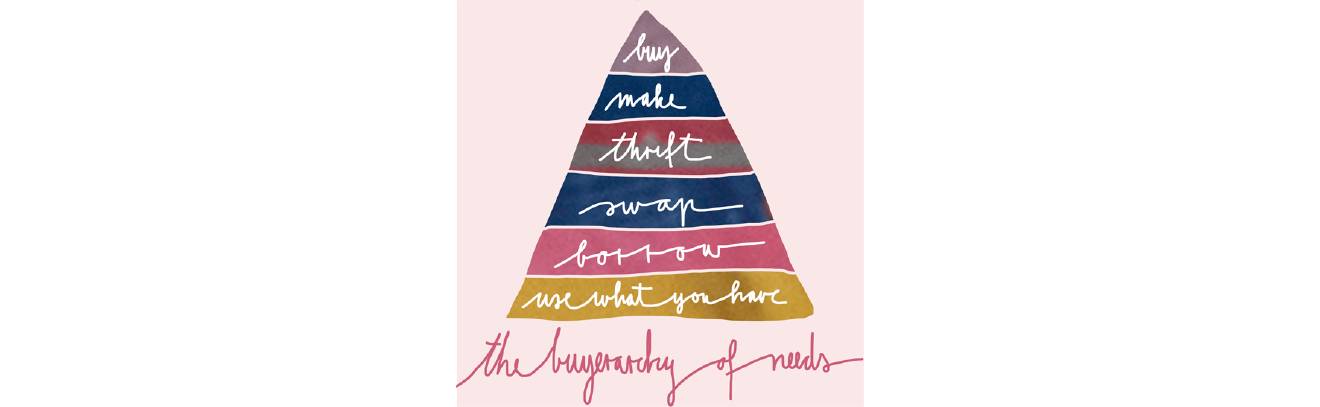 buy
make
thrift
swap
borrow
use what you have
the buyerarchy of needs